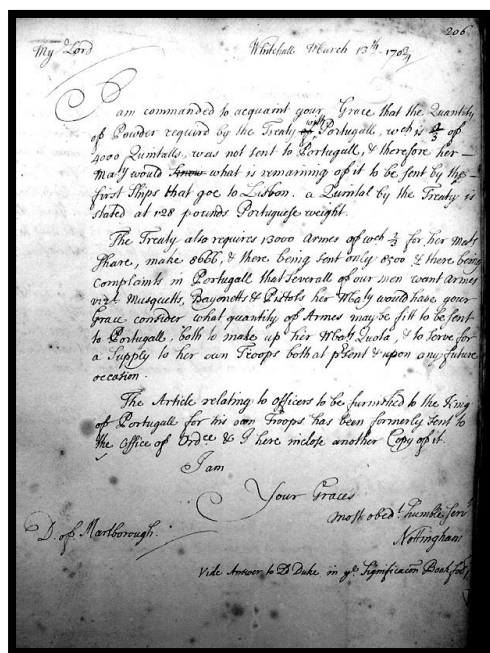 206
My Lord
Whitehall March 13th 170¾
I am commanded to acquaint your Grace that the Quantity
of Powder requird by the Treaty with Portugall, wch is ⅔ of
4000 Quintalls, was not sent to Portugall, & therefore her
Maty would know what is remaining of it to be sent by the
first Ships that goe to Lisbon. a Quintal by the Treaty is
stated at 128 pounds Portuguese weight.
The Treaty also requires 13000 Armes of wch ⅔ for her Mats
share, make 8666, & there being sent only 8500 & there being
Complaints in Portugall that severall of our men want Armes
vizt Musquets, Bayonets & Pistols her Maty would have your
Grace consider what quantity of Armes may be fitt to be sent
to Portugall, both to make up her Mats Quota, & to serve for
a Supply to her own Troops both at pʳsent & upon any future
occasion.
The Article relating to officers to be furnished to the King
of Portugall for his own Troops has been formerly sent to
the Office of Ordce & I here inclose another Copy of it.
I am
Your Graces
most obedt humble Servt
Nottingham
D. of Marlborough.
Vide Answer to D Duke in ye Significacon Book fol